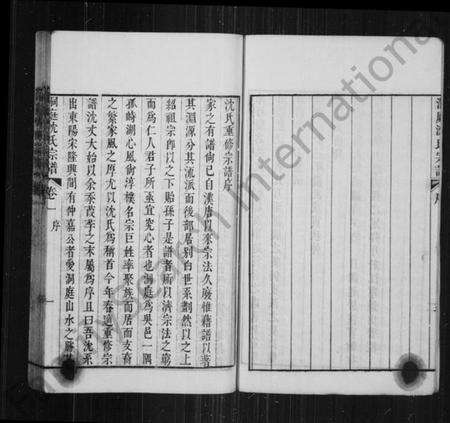 洞庭沈氏宗譜
序
沈氏重修宗譜序
家之有譜尙已自漢唐以來宗法久廢惟藉譜以著
其淵源分其流派而後部居別白世系劃然以之上
紹祖宗卽以之下貽孫子是譜者所以濟宗法之窮
而爲仁人君子所亟宜究心者也洞庭爲吳邑一隅
孤峙湖心風尙淳樸名宗巨姓率聚族而居而支裔
之繁家風之厚尤以沈氏爲稱首今年春適重修宗
譜沈丈大始以余忝葭莩之末屬爲序且曰吾沈系
出東陽宋隆興間有仲嘉公者愛洞庭山水之勝
洞庭沈氏宗譜
卷一
序
一
International